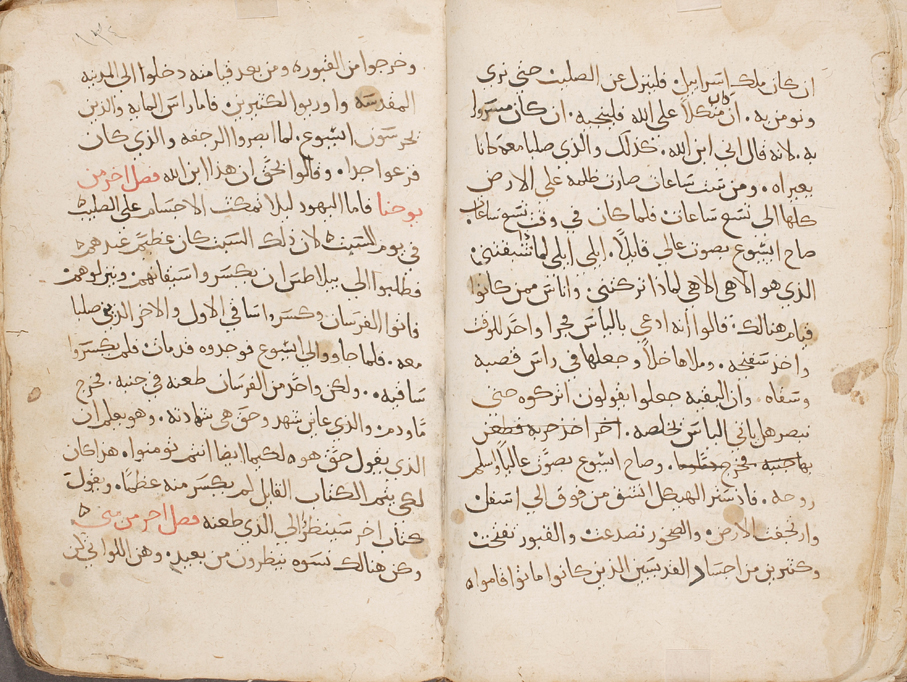 ان كان ملك اسراييل فلينزل عن الصليب حتى نرى
ونومن به . ان كان متكلاً على الله فلينجيه . ان كان مسرورا
به . لانه قال اني ابن الله . كذلك والذي صلبا معه كانا
يعيراه . ومن ست ساعات صارت ظلمه على الارض
كلها الى تسع ساعات فلما كان في وقت تسع ساعات
صاح ايشوع بصوت عالي قايلاً . ايلي ايلي لماذا شبقتني
الذي هو الاهي الاهي لماذا تركتني . واناس ممن كانوا
قيام هنالك . قالوا انه ادعي بالياس فجرا واحد للوقت
واخذ سفنجه . وملاها خلاً وجعلها في راس قصبه
وسقاه . وان البقيه جعلوا يقولون اتركوه حتى
نبصر هل ياتي الياس لخلصه . اخر اخذ حربه فطعن
بها جنبه فخرج . وصاح ايشوع بصوت عالياً وسلم
روحه . فاذ ستر الهيكل انشق من فوق الى اسفل
وارتجفت الارض . والصخور تصدعت والقبور تفتحت
وكثيرين من اجساد القديسين الذين كانوا ماتوا قاموا
وخرجوا من القبور ومن بعد قيامته دخلوا الى المدينه
المقدسه واوريوا لكثيرين . فاما راس المايه والذين
يحرسون ايشوع . لما ابصروا الرجفه والذي كان
فزعوا جدا . وقالوا الحق ان هذا ابن الله فصل اخر من
يوحنا فاما اليهود ليلا تمكث الاجسام على الصليب
في يوم السبت لان ذلك السبت كان عظيم عندهم
فطلبوا الي بيلاطس ان يكسروا اسيقانهم وينزلوهم
فاتوا الفرسان وكسروا ساقي الاول والاخر الذي صلبا
معه . فلما جاووا الى ايشوع فوجدوه قد مات فلم يكسروا
ساقيه . ولكن واحد من الفرسان طعنه في جنبه . فخرج
ما ودم . والذي عاين شهد وحق هي شهادته . وهو يعلم ان
الذي يقول حق هو لكيما ايضا انتم تومنوا . هذا كان
لكي يتم الكتاب القايل لم يكسر منه عظماً . ويقول
كتاب اخر سينظر الى الذي طعنه فصل اخر من متى
وكن هنالك نسوه ينظرون من بعيد . وهن اللواتي كن